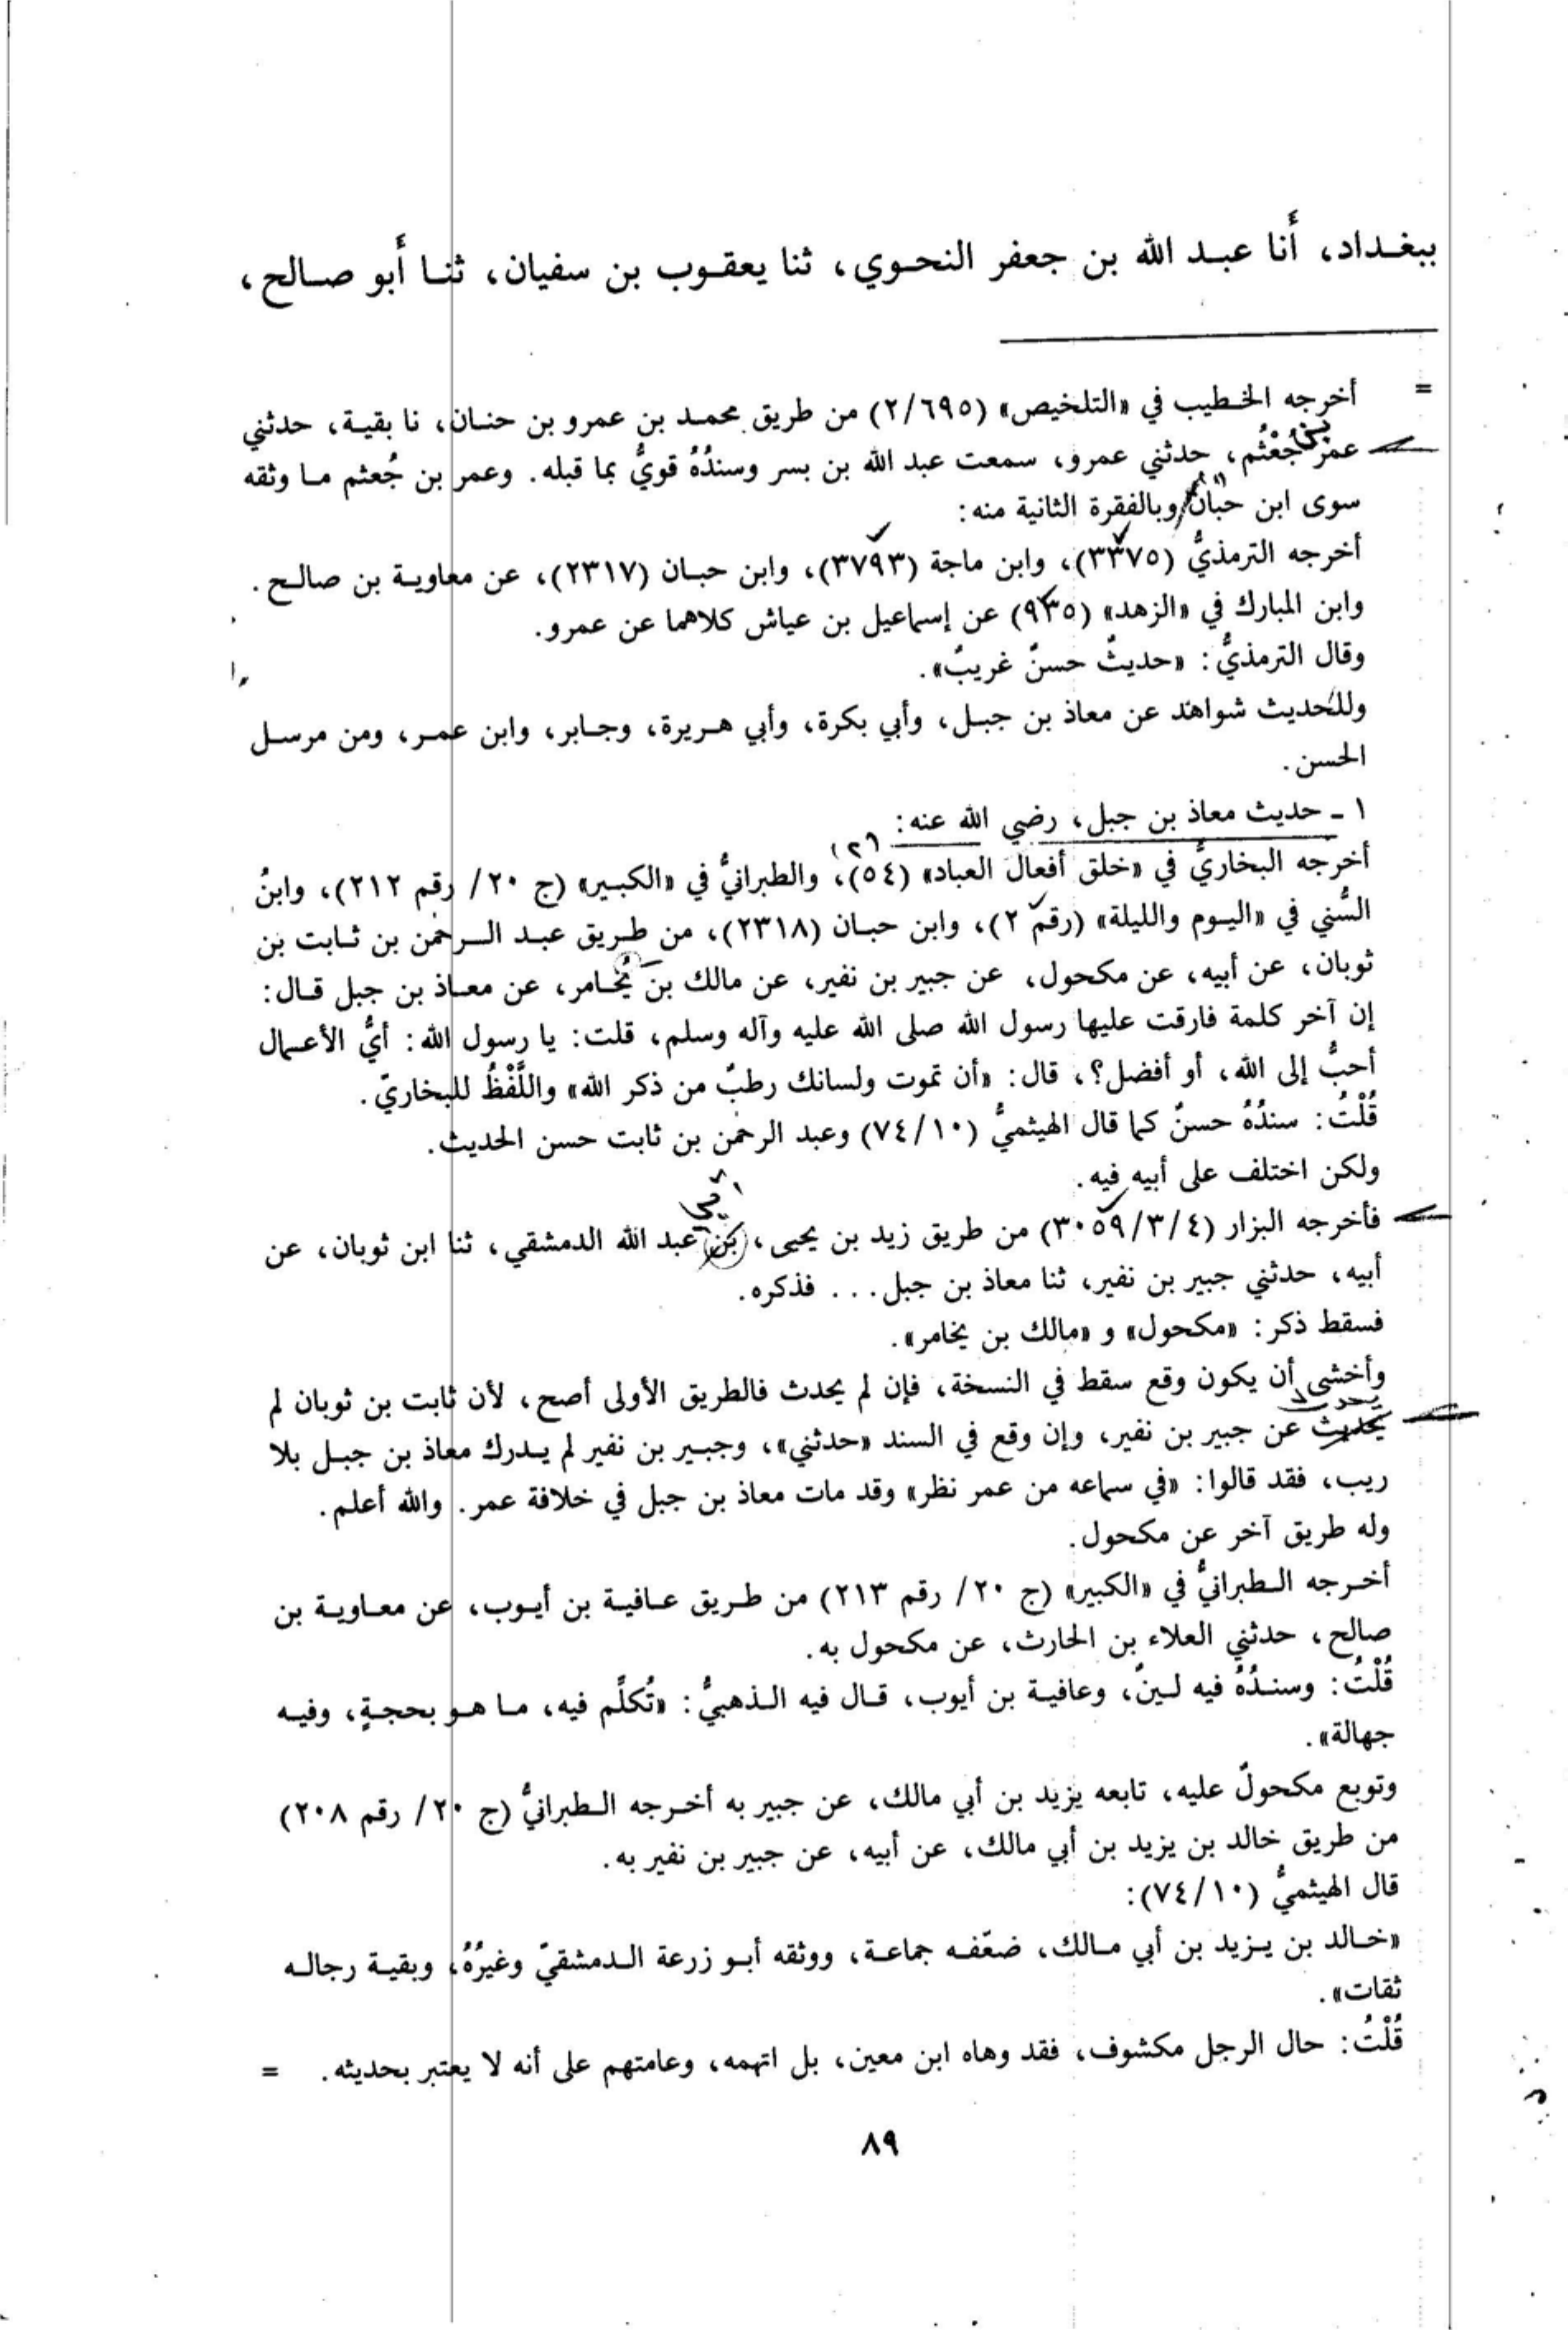 ببغداد، أَنا عبد الله بن جعفر النحوي، ثنا يعقوب بن سفيان، ثنا أَبو صالح،
= أخرجه الخطيب في «التلخيص» (٢/٦٩٥) من طريق محمد بن عمرو بن حنان، نا بقية، حدثني
عمر بن جُعْثُم، حدثني عمرو، سمعت عبد الله بن بسر وسندُهُ قويٌّ بما قبله. وعمر بن جُعثم ما وثقه
سوى ابن حبان وبالفقرة الثانية منه:
أخرجه الترمذيُّ (٣٣٧٥)، وابن ماجة (٣٧٩٣)، وابن حبان (٢٣١٧)، عن معاوية بن صالح.
وابن المبارك في «الزهد» (٩٣٥) عن إسماعيل بن عياش كلاهما عن عمرو.
وقال الترمذيُّ: «حديثٌ حسنٌ غريبٌ».
وللحديث شواهد عن معاذ بن جبل، وأبي بكرة، وأبي هريرة، وجابر، وابن عمر، ومن مرسل
الحسن.
١ - حديث معاذ بن جبل، رضي الله عنه:
أخرجه البخاريُّ في «خلق أفعال العباد» (٥٤)، والطبرانيُّ في «الكبير» (ج ٢٠/ رقم ٢١٢)، وابنُ
السُّني في «اليوم والليلة» (رقم ٢)، وابن حبان (٢٣١٨)، من طريق عبد الرحمٰن بن ثابت بن
ثوبان، عن أبيه، عن مكحول، عن جبير بن نفير، عن مالك بن يُخَامر، عن معاذ بن جبل قال:
إن آخر كلمة فارقت عليها رسول الله صلى الله عليه وآله وسلم، قلت: يا رسول الله: أيُّ الأعمال
أحبُّ إلى الله، أو أفضل؟، قال: «أن تموت ولسانك رطبٌ من ذكر الله» واللَّفْظُ للبخاريّ.
قُلْتُ: سندُهُ حسنٌ كما قال الهيثميُّ (٧٤/١٠) وعبد الرحمٰن بن ثابت حسن الحديث.
ولكن اختلف على أبيه فيه.
فأخرجه البزار (٣٠٥٩/٣/٤) من طريق زيد بن يحيى، بن عبد الله الدمشقي، ثنا ابن ثوبان، عن
أبيه، حدثني جبير بن نفير، ثنا معاذ بن جبل... فذكره.
فسقط ذكر: «مكحول» و «مالك بن يخامر».
وأخشى أن يكون وقع سقط في النسخة، فإن لم يحدث فالطريق الأولى أصح، لأن ثابت بن ثوبان لم
يحدث عن جبير بن نفير، وإن وقع في السند «حدثني»، وجبير بن نفير لم يدرك معاذ بن جبل بلا
ريب، فقد قالوا: «في سماعه من عمر نظر» وقد مات معاذ بن جبل في خلافة عمر. والله أعلم.
وله طريق آخر عن مكحول.
أخرجه الطبرانيُّ في «الكبير» (ج ٢٠/ رقم ٢١٣) من طريق عافية بن أيوب، عن معاوية بن
صالح، حدثني العلاء بن الحارث، عن مكحول به.
قُلْتُ: وسندُهُ فيه لينٌ، وعافية بن أيوب، قال فيه الذهبيُّ: «تُكلِّم فيه، ما هو بحجةٍ، وفيه
جهالة».
وتوبع مكحولٌ عليه، تابعه يزيد بن أبي مالك، عن جبير به أخرجه الطبرانيُّ (ج ٢٠/ رقم ٢٠٨)
من طريق خالد بن يزيد بن أبي مالك، عن أبيه، عن جبير بن نفير به.
قال الهيثميُّ (٧٤/١٠):
«خالد بن يزيد بن أبي مالك، ضعّفه جماعة، ووثقه أبو زرعة الدمشقيّ وغيرُهُ، وبقية رجاله
ثقات».
قُلْتُ: حال الرجل مكشوف، فقد وهاه ابن معين، بل اتهمه، وعامتهم على أنه لا يعتبر بحديثه. =
٨٩